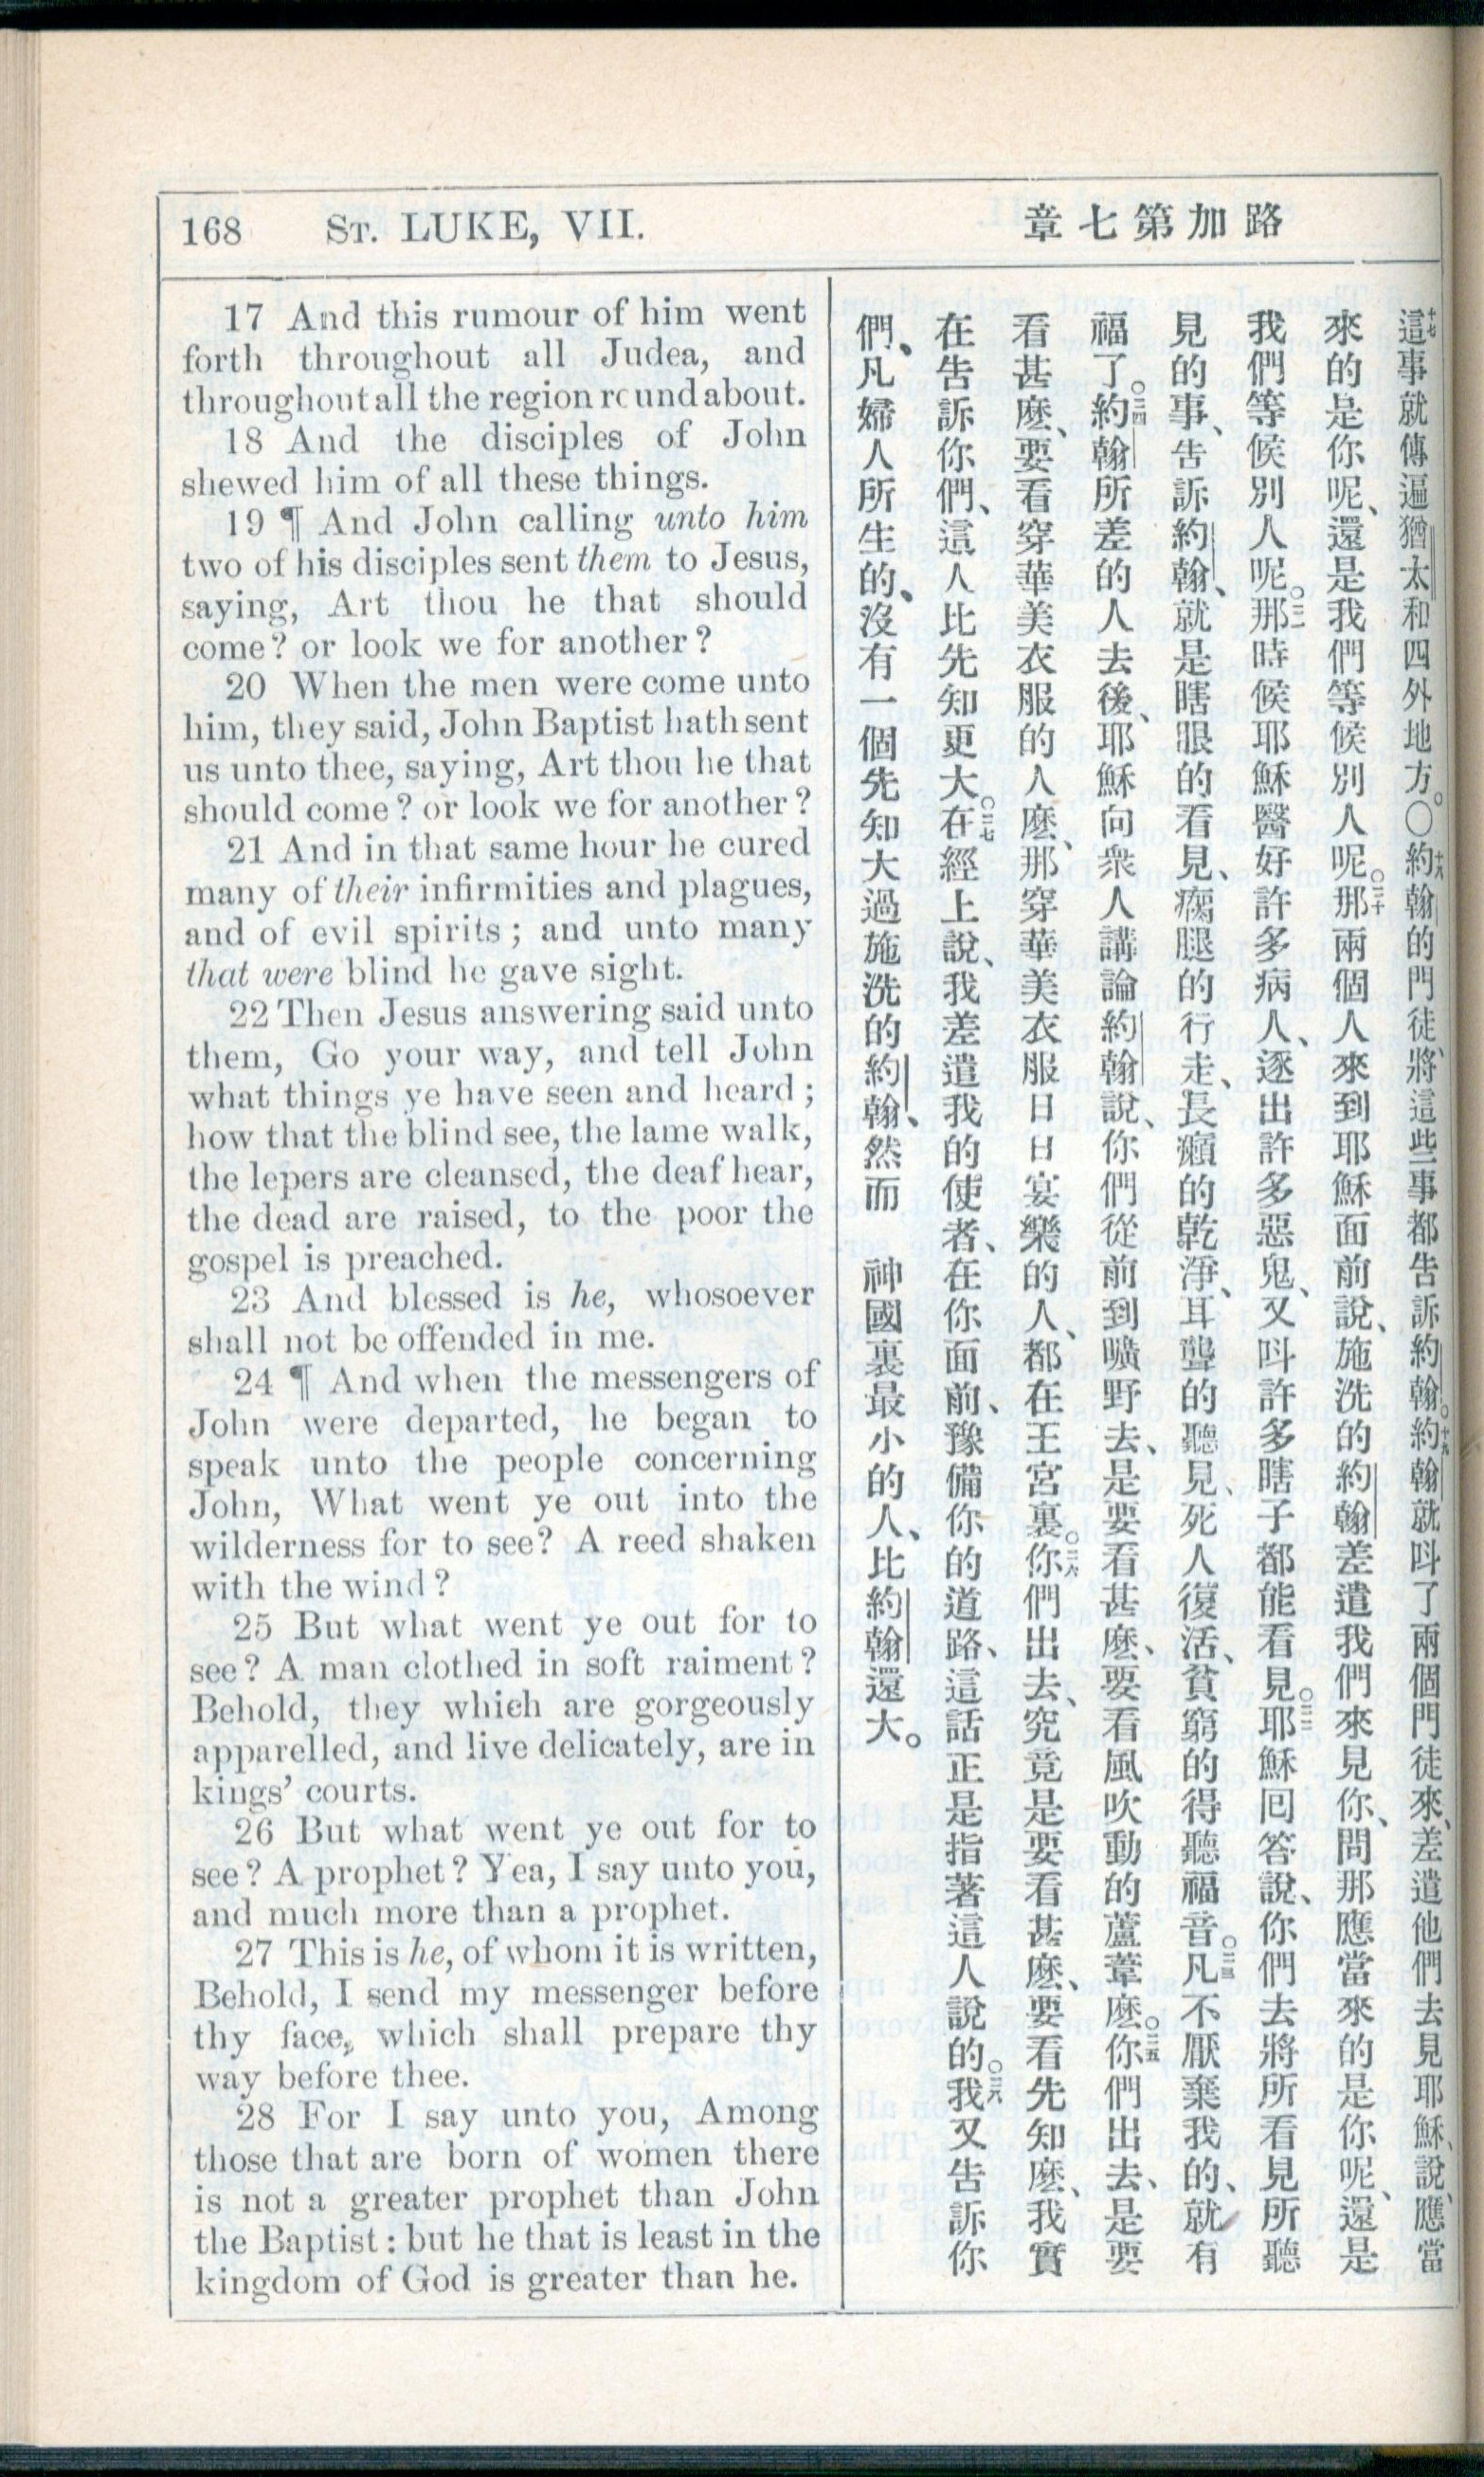 168 ST. LUKE, VII.
路加第七章
17 And this rumour of him went
forth throughout all Judea, and
throughout all the region round about.
18 And the disciples of John
shewed him of all these things.
19 ¶ And John calling unto him
two of his disciples sent them to Jesus,
saying, Art thou he that should
come? or look we for another?
20 When the men were come unto
him, they said, John Baptist hath sent
us unto thee, saying, Art thou he that
should come? or look we for another?
21 And in that same hour he cured
many of their infirmities and plagues,
and of evil spirits; and unto many
that were blind he gave sight.
22 Then Jesus answering said unto
them, Go your way, and tell John
what things ye have seen and heard;
how that the blind see, the lame walk,
the lepers are cleansed, the deaf hear,
the dead are raised, to the poor the
gospel is preached.
23 And blessed is he, whosoever
shall not be offended in me.
24 ¶ And when the messengers of
John were departed, he began to
speak unto the people concerning
John, What went ye out into the
wilderness for to see? A reed shaken
with the wind?
25 But what went ye out for to
see? A man clothed in soft raiment?
Behold, they which are gorgeously
apparelled, and live delicately, are in
kings' courts.
26 But what went ye out for to
see? A prophet? Yea, I say unto you,
and much more than a prophet.
27 This is he, of whom it is written,
Behold, I send my messenger before
thy face, which shall prepare thy
way before thee.
28 For I say unto you, Among
those that are born of women there
is not a greater prophet than John
the Baptist: but he that is least in the
kingdom of God is greater than he.
十七這事就傳遍猶太和四外地方。〇十八約翰的門徒、將這些事都告訴約翰。十九約翰就呌了兩個門徒來、差遣他們去見耶穌、說、應當
來的是你呢、還是我們等候別人呢。二十那兩個人來到耶穌面前說、施洗的約翰差遣我們來見你、問那應當來的是你呢、還是
我們等候別人呢。二一那時候耶穌醫好許多病人、逐出許多惡鬼、又呌許多瞎子都能看見。二二耶穌回答說、你們去將所看見所聽
見的事、告訴約翰、就是瞎眼的看見、瘸腿的行走、長癩的乾淨、耳聾的聽見、死人復活、貧窮的得聽福音。二三凡不厭棄我的、就有
福了。二四約翰所差的人去後、耶穌向衆人講論約翰說、你們從前到曠野去、是要看甚麽、要看風吹動的蘆葦麽。二五你們出去、是要
看甚麽、要看穿華美衣服的人麽、那穿華美衣服日日宴樂的人、都在王宮裏。二六你們出去、究竟是要看甚麽、要看先知麽、我實
在告訴你們、這人比先知更大。二七在經上說、我差遣我的使者、在你面前、豫備你的道路、這話正是指著這人說的。二八我又告訴你
們、凡婦人所生的、沒有一個先知大過施洗的約翰、然而 神國裏最小的人、比約翰還大。